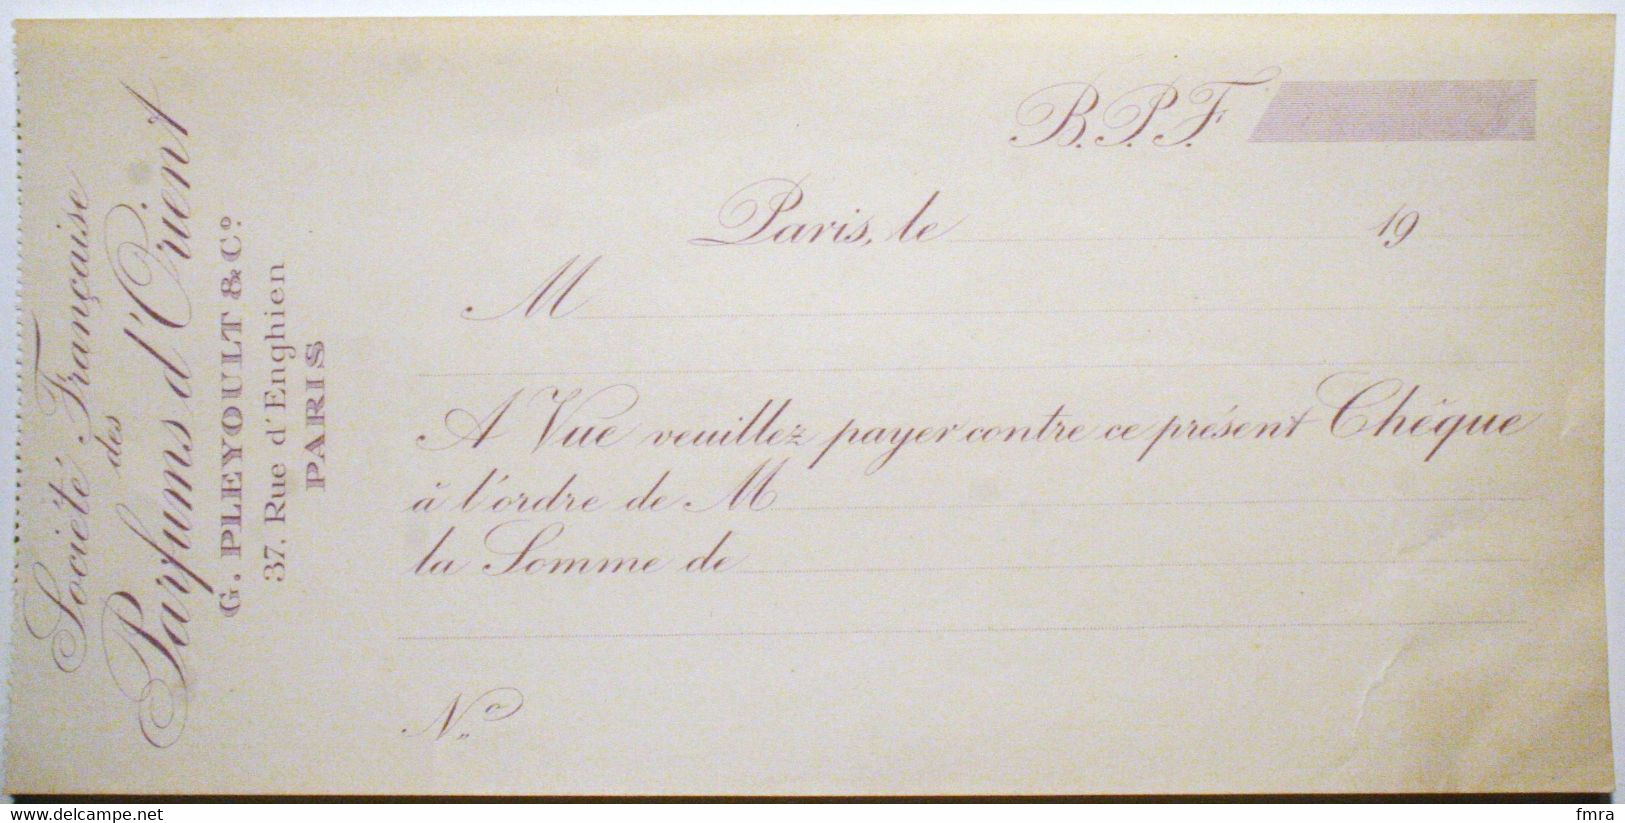 Société Française
des
Parfums d'Orient
G. PLEYOULT & Cº.
37, Rue d'Enghien
PARIS
B.P.F.
Paris, le 19
M
A Vue veuillez payer contre ce présent Chèque
à l'ordre de M
la Somme de
Nº
delcampe.net
fmra